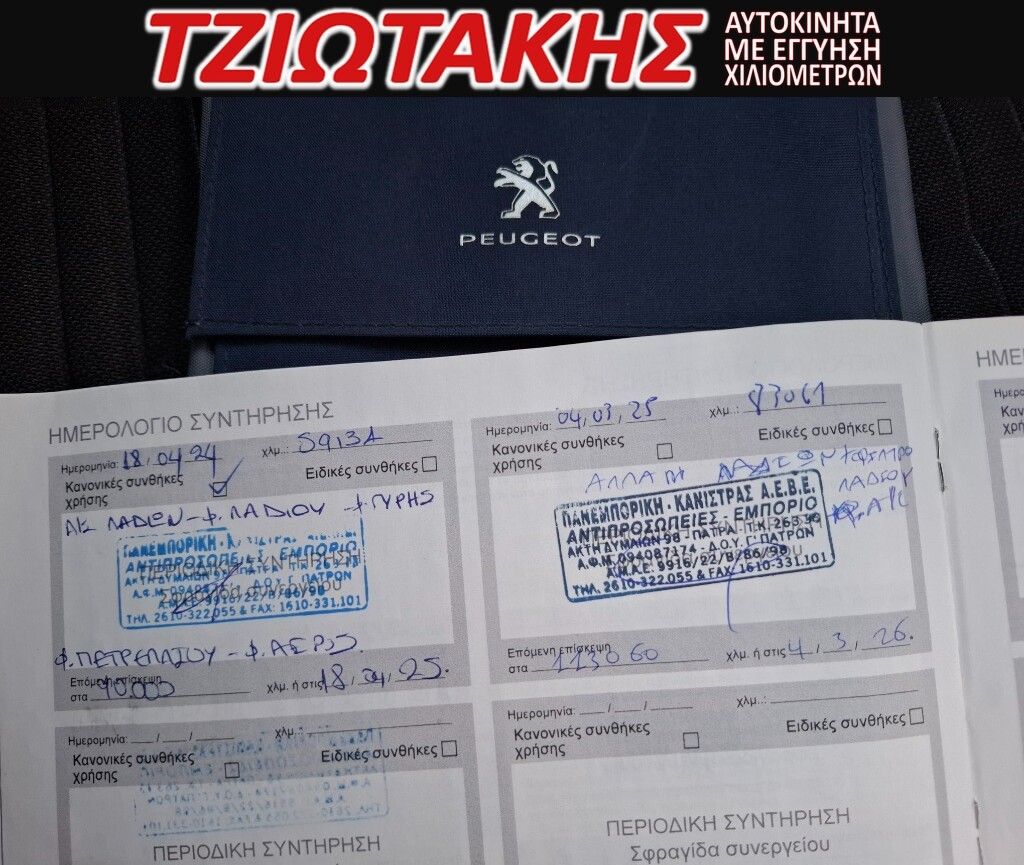 ΤΖΙΩΤΑΚΗΣ
ΑΥΤΟΚΙΝΗΤΑ
ΜΕ ΕΓΓΥΗΣΗ
ΧΙΛΙΟΜΕΤΡΩΝ
PEUGEOT
ΗΜΕΡΟΛΟΓΙΟ ΣΥΝΤΗΡΗΣΗΣ
Ημερομηνία: 18/04/24 χλμ.:
Κανονικές συνθήκες
χρήσης
Ειδικές συνθήκες
ΛΑΔΙΩΝ - Φ. ΛΑΔΙΟΥ - Φ. ΓΥΡΗΣ
ΠΑΝΕΜΠΟΡΙΚΗ
ΑΝΤΙΠΡΟΣΩΠΕΙΕΣ - ΕΜΠΟΡΙΟ
ΑΚΤΗ ΔΥΜΑΙΩΝ 98
Α.Φ.Μ. Δ.Ο.Υ. Γ' ΠΑΤΡΩΝ
Α.Μ.Α.Ε. 9916/22/Β/86/98
ΤΗΛ. 2610-322.055 & FAX: 1610-331.101
Φ. ΠΕΤΡΕΛΑΙΟΥ - Φ. ΑΕΡΟΣ.
Επόμενη επίσκεψη
στα 90.000 χλμ. ή στις 18/04/25.
Ημερομηνία: 04/03/25 χλμ.: 83061
Κανονικές συνθήκες
χρήσης
Ειδικές συνθήκες
ΑΛΛΑΓΗ ΛΑΔΙΩΝ
ΛΑΔΙΟΥ
ΠΑΝΕΜΠΟΡΙΚΗ - ΚΑΝΙΣΤΡΑΣ Α.Ε.Β.Ε.
ΑΝΤΙΠΡΟΣΩΠΕΙΕΣ - ΕΜΠΟΡΙΟ
ΑΚΤΗ ΔΥΜΑΙΩΝ 98 - ΠΑΤΡΑ - Τ.Κ. 263.36
Α.Φ.Μ. 094087174 - Δ.Ο.Υ. Γ' ΠΑΤΡΩΝ
Α.Μ.Α.Ε. 9916/22/Β/86/98
ΤΗΛ. 2610-322.055 & FAX: 1610-331.101
Επόμενη επίσκεψη
στα 113060 χλμ. ή στις 4/3/26.
Ημερομηνία: __/__/__ χλμ.:
Κανονικές συνθήκες
χρήσης
Ειδικές συνθήκες
ΠΕΡΙΟΔΙΚΗ ΣΥΝΤΗΡΗΣΗ
Ημερομηνία: __/__/__ χλμ.:
Κανονικές συνθήκες
χρήσης
Ειδικές συνθήκες
ΠΕΡΙΟΔΙΚΗ ΣΥΝΤΗΡΗΣΗ
Σφραγίδα συνεργείου